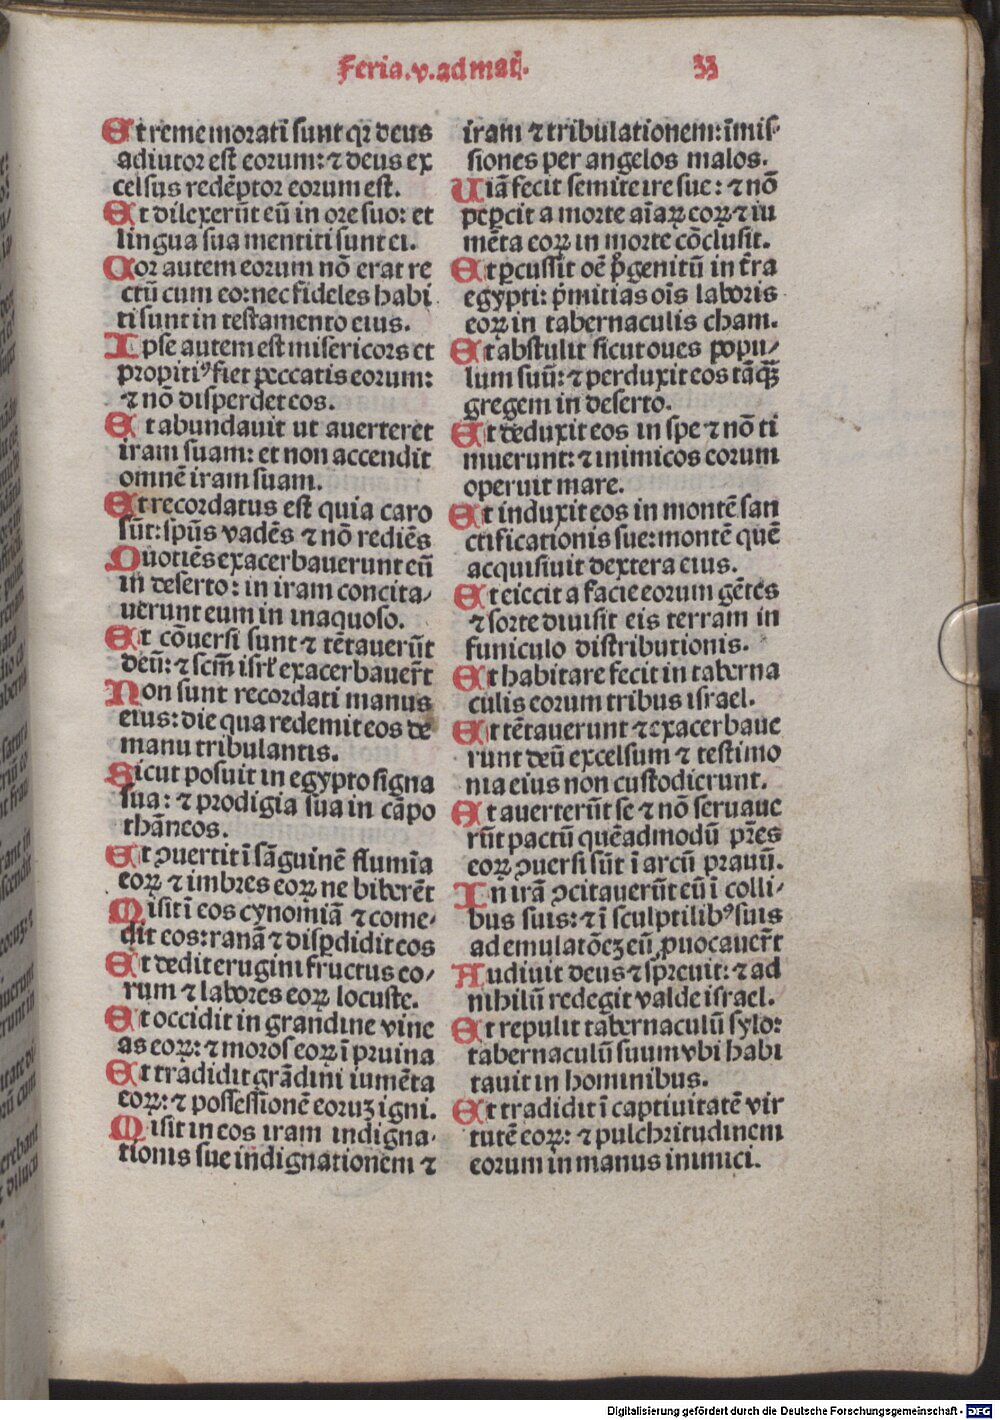 Feria.v.ad mat̄.
33
Et rememorati sunt qꝛ deus
adiutor est eorum: ⁊ deus ex
celsus redēptor eorum est.
Et dilexerūt eū in ore suo: et
lingua sua mentiti sunt ei.
Cor autem eorum nō erat re
ctū cum eo: nec fideles habi
ti sunt in testamento eius.
Ipse autem est misericors et
propitiꝰ fiet peccatis eorum:
⁊ nō disperdet eos.
Et abundauit ut auerteret
iram suam: et non accendit
omnē iram suam.
Et recordatus est quia caro
sūt: spūs vadēs ⁊ nō rediēs
Quotiēs exacerbauerunt eū
in deserto: in iram concita⸗
uerunt eum in inaquoso.
Et cōuersi sunt ⁊ tētauerūt
deū: ⁊ scm̄ isrl̄ exacerbauer̄t
Non sunt recordati manus
eius: die qua redemit eos de
manu tribulantis.
Sicut posuit in egypto signa
sua: ⁊ prodigia sua in cāpo
thāneos.
Et ꝯuertit ī sāguinē flumīa
eoꝝ ⁊ imbres eoꝝ ne biberēt
Misit ī eos cynomiā ⁊ come⸗
dit eos: ranā ⁊ disꝑdidit eos
Et dedit erugini fructus eo⸗
rum ⁊ labores eoꝝ locuste.
Et occidit in grandine vine
as eoꝝ: ⁊ moros eoꝝ ī pruina
Et tradidit grādini iumēta
eoꝝ: ⁊ possessionē eoruꝫ igni.
Misit in eos iram indigna⸗
tionis sue indignationem ⁊
iram ⁊ tribulationem: īmis⸗
siones per angelos malos.
Uiā fecit semite ire sue: ⁊ nō
peꝑcit a morte aīaꝝ eoꝝ ⁊ iu
mēta eoꝝ in morte cōclusit.
Et ꝑcussit oē p̄genitū in t̄ra
egypti: p̄mitias oīs laboris
eoꝝ in tabernaculis cham.
Et abstulit sicut oues popu⸗
lum suū: ⁊ perduxit eos tāꝙ̄
gregem in deserto.
Et deduxit eos in spe ⁊ nō ti
muerunt: ⁊ inimicos eorum
operuit mare.
Et induxit eos in montē san
ctificationis sue: montē quē
acquisiuit dextera eius.
Et eiecit a facie eorum gētes
⁊ sorte diuisit eis terram in
funiculo distributionis.
Et habitare fecit in taberna
culis eorum tribus israel.
Et tētauerunt ⁊ exacerbaue
runt deū excelsum ⁊ testimo
nia eius non custodierunt.
Et auerterūt se ⁊ nō seruaue
rūt pactū quēadmodū pr̄es
eoꝝ ꝯuersi sūt ī arcū prauū.
In irā ꝯcitauerūt eū ī colli⸗
bus suis: ⁊ ī sculptilibꝰ suis
ad emulatōeꝫ eū ꝓuocauer̄t
Audiuit deus ⁊ spreuit: ⁊ ad
nihilū redegit valde israel.
Et repulit tabernaculū sylo:
tabernaculū suum vbi habi
tauit in hominibus.
Et tradidit ī captiuitatē vir
tutē eoꝝ: ⁊ pulchritudinem
eorum in manus inimici.
Digitalisierung gefördert durch die Deutsche Forschungsgemeinschaft - DFG